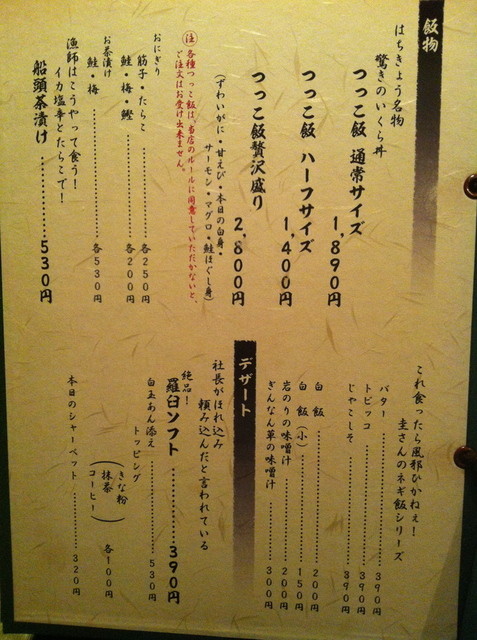 飯物
はちきょう名物
驚きのいくら丼
つっこ飯 通常サイズ
1,890円
つっこ飯 ハーフサイズ
1,400円
つっこ飯贅沢盛り
2,800円
(ずわいがに・甘えび・本日の白身・
サーモン・マグロ・鮭ほぐし身)
注 各種つっこ飯は、当店のルールに同意していただかないと、
ご注文はお受け出来ません。
おにぎり
筋子・たらこ………各250円
鮭・梅・鰹………各200円
お茶漬け
鮭・梅………各530円
漁師はこうやって食う!
イカ塩辛とたらこで!
船頭茶漬け………530円
これ食ったら風邪ひかねぇ!
圭さんのネギ飯シリーズ
バター………390円
トビッコ………390円
じゃこしそ………390円
白 飯………200円
白 飯(小)………150円
岩のりの味噌汁………200円
ぎんなん草の味噌汁………300円
デザート
社長がほれ込み
頼み込んだと言われている
絶品!
羅臼ソフト………390円
白玉あん添え………530円
トッピング
(きな粉
抹茶
コーヒー)
各100円
本日のシャーベット………320円